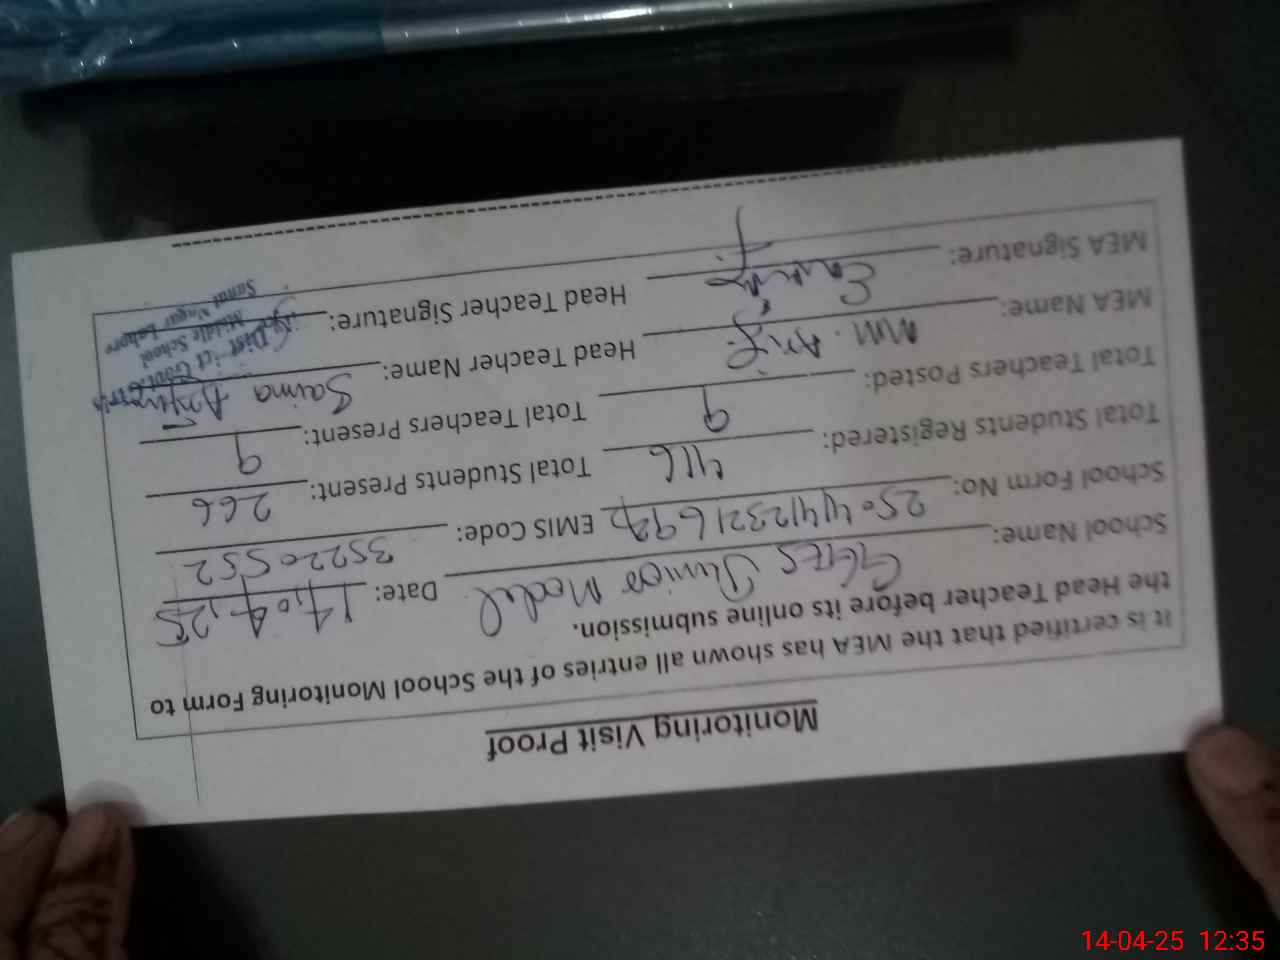 Monitoring Visit Proof
It is certified that the MEA has shown all entries of the School Monitoring Form to
the Head Teacher before its online submission.
School Name: Junior Model Date: 14,04,25
School Form No: EMIS Code: 35220552
Total Students Registered: 416 Total Students Present: 266
Total Teachers Posted: 9 Total Teachers Present: 9
MEA Name: MM. Arif Head Teacher Name: Saima
MEA Signature: Head Teacher Signature:
Middle School
Nagar Lahore
14-04-25 12:35